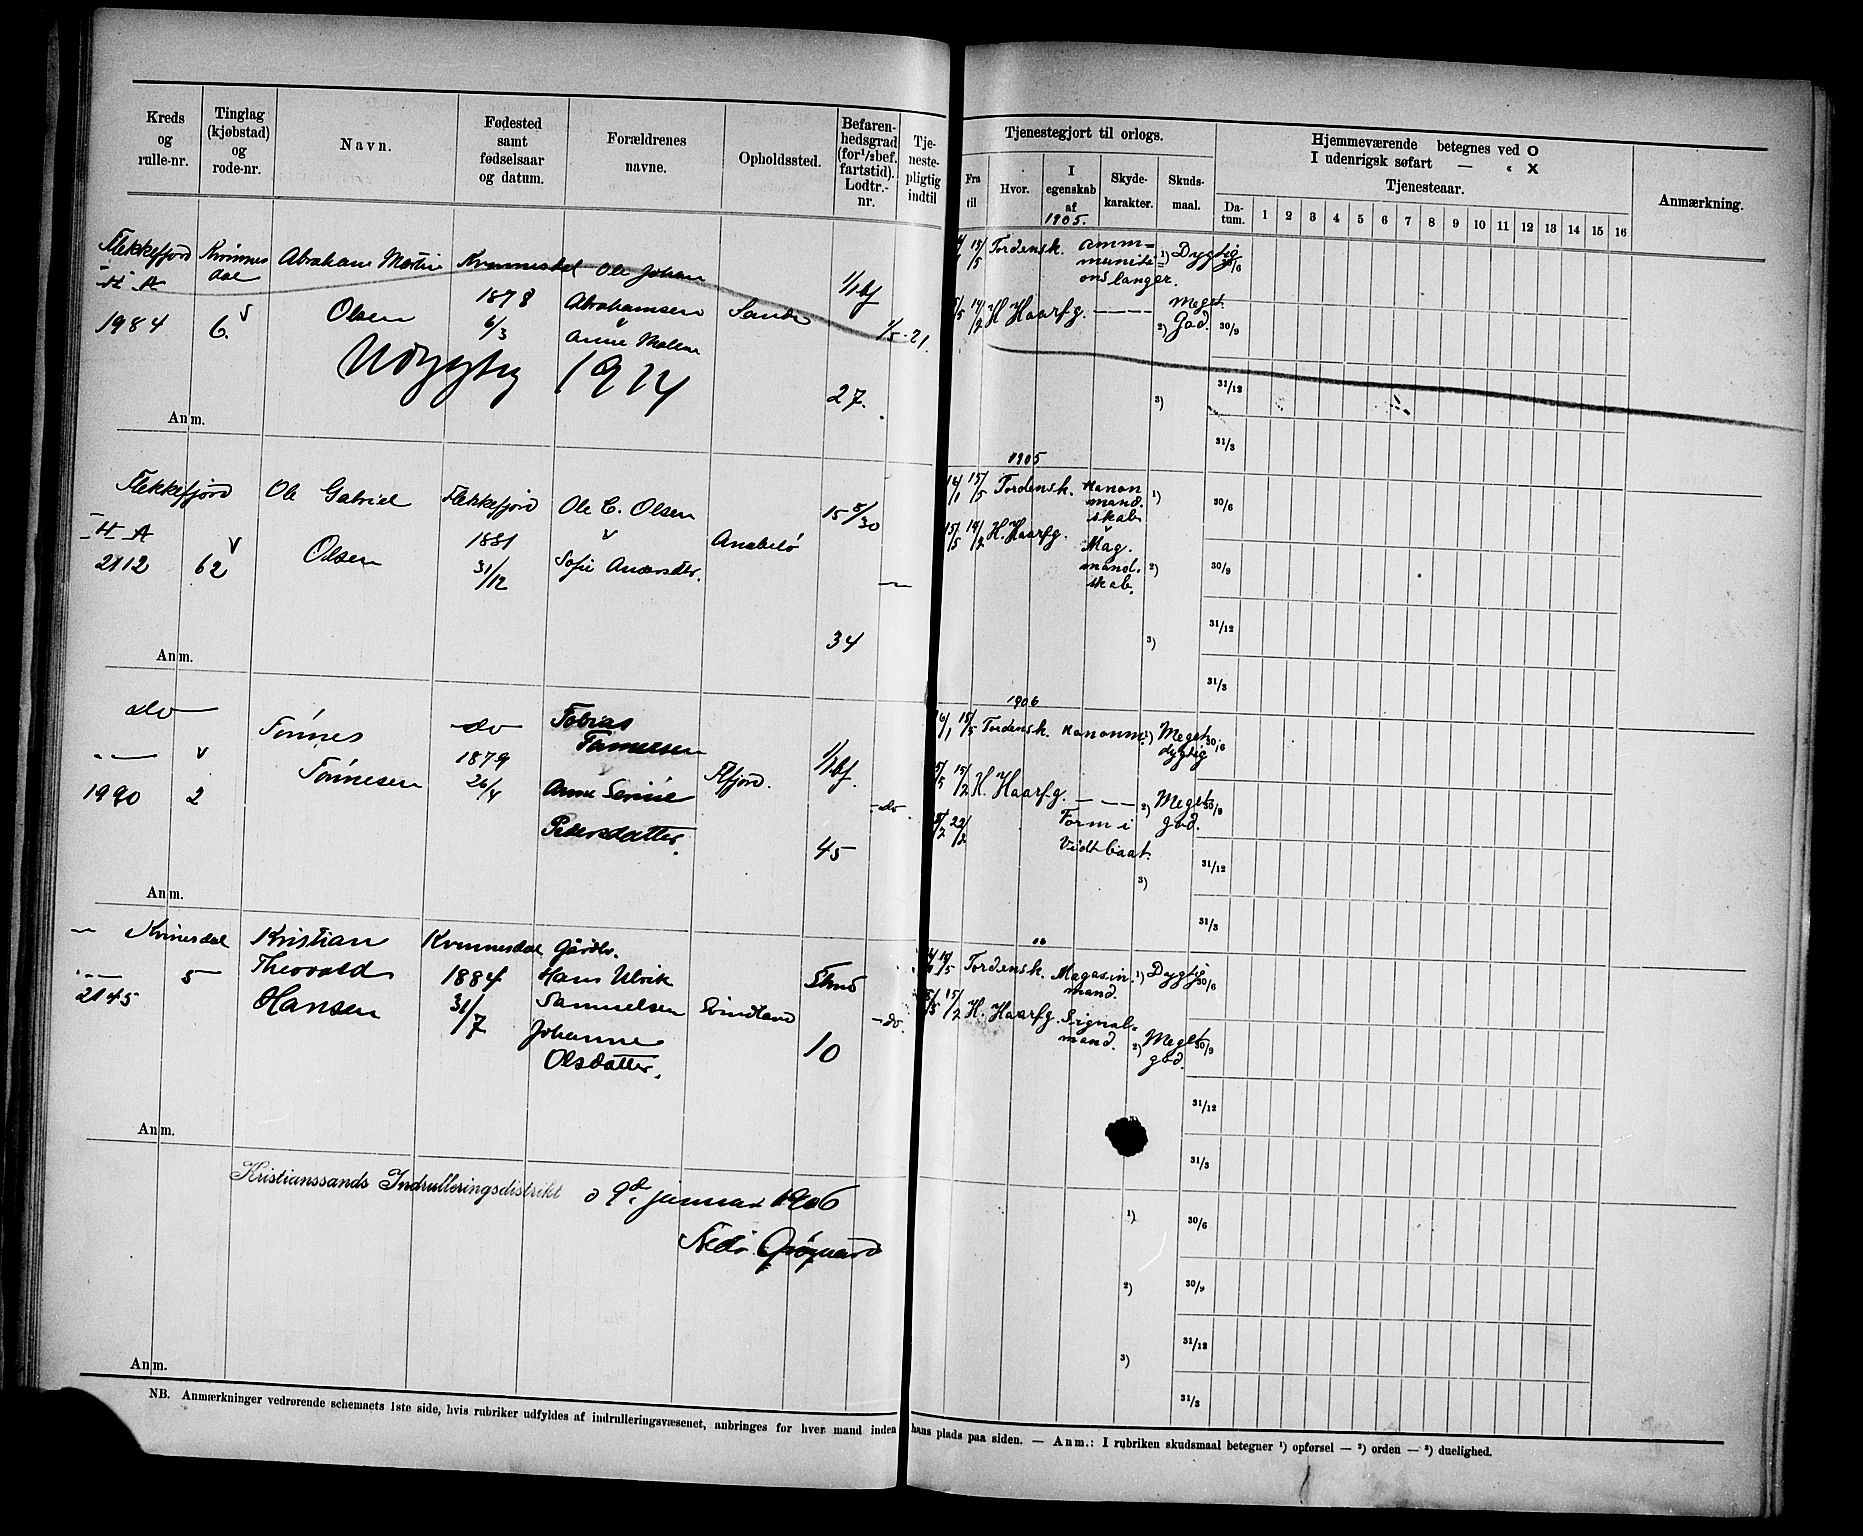 Kreds og rulle-nr.
Tinglag (kjøbstad) og rode-nr.
Navn.
Fødested samt fødselsaar og datum.
Forældrenes navne.
Opholdssted.
Befaren-hedsgrad (for 1/2 bef. fartstid). Lodtr.-nr.
Tje-neste-pligtig indtil
Tjenestegjort til orlogs.
Fra til
Hvor.
I egenskab af
Skyde-karakter.
Skuds-maal.
Hjemmeværende betegnes ved O
I udenrigsk søfart — " X
Tjenesteaar.
Da-tum. 1 2 3 4 5 6 7 8 9 10 11 12 13 14 15 16
Anmærkning.
1905.
Flekkefjord Kvinnesdal Abraham Martin Kvinnesdal Ole Johan
H A
1984 6. Olsen 1878 6/3 Abrahamsen Anne Malene Sande 1/1 bf 1/5-21.
27.
1914
Tordensk. ammunitionslanger. 1) Dygtig 30/6
H. Haarfg. — — — 2) Meget God. 30/9
3) 31/12
31/3
Anm.
1905
Flekkefjord Ole Gabriel Flekkefjord Ole C. Olsen
H A
2112 62 Olsen 1881 31/12 Sofie Andersdtr. Anabelø 15 5/30
34
14/1 15/5 Tordensk. Kanonmandskab 1) 30/6
15/5 14/2 H. Haarfg. Mag. mandskab. 2) 30/9
3) 31/12
31/3
Anm.
1906
do Tønnes do Tobias Tønnesen
1990 2 Tønnesen 1879 26/4 Anne Serine Pedersdatter. Ffjord. 1/1 bf. do.
45
15/5 Tordensk. Kanonm. 1) Meget dygtig 30/6
15/2 H. Haarfg. — — — 2) Meget god. 30/9
22/2 Form i Vidtbaat.
31/12
3)
31/3
Anm.
"
— Kvinesdal Kristian Kvinnesdal Gårdbr.
— 5 Theovald 1884 Hans Ulrik
2145 Hansen 31/7 Samuelsen Svindland do.
Johanne Olsdatter. 10
Tordensk. Magasinmand. 1) Dygtig 30/6
15/2 H. Haarfg. Signalmand. 2) Meget god. 30/9
31/12
31/3
Anm.
Kristianssands Indrulleringsdistrikt d 9de januar 1906
1) 30/6
2) 30/9
31/12
3)
31/3
Anm.
NB. Anmærkninger vedrørende schemaets 1ste side, hvis rubriker udfyldes af indrulleringsvæsenet, anbringes for hver mand inden hans plads paa siden. — Anm.: I rubriken skudsmaal betegner ¹) opførsel — ²) orden — ³) duelighed.